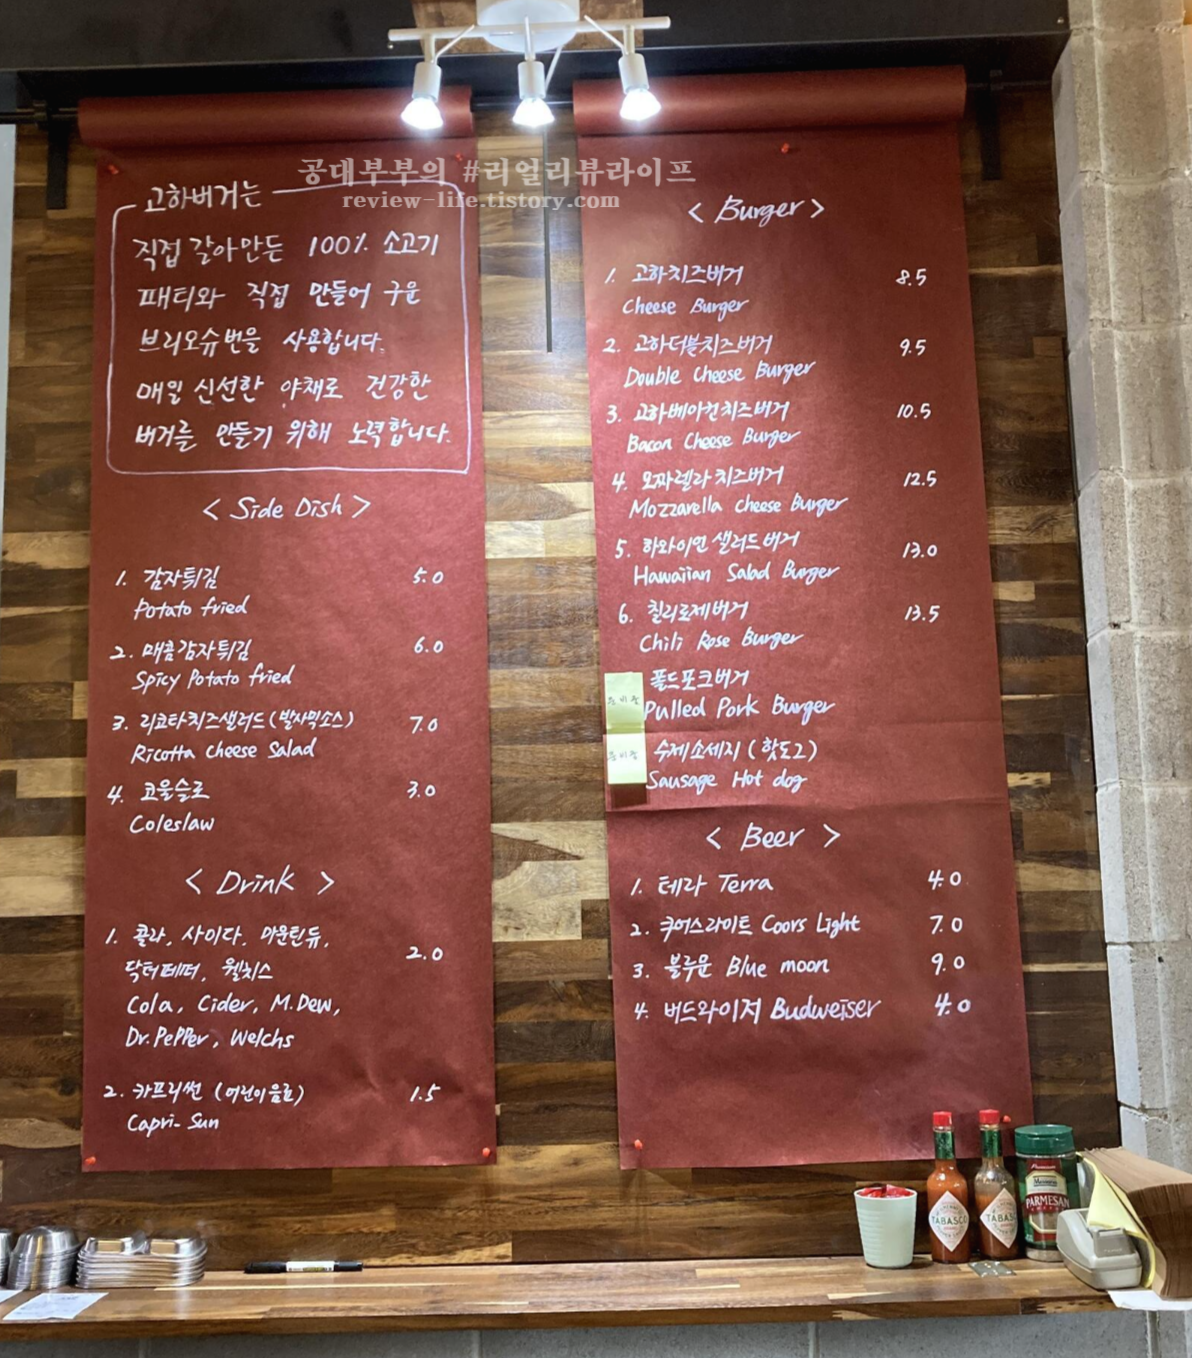 공대부부의 #리얼리뷰라이프
review-life.tistory.com
고하버거는
직접 갈아만든 100% 소고기
패티와 직접 만들어 구운
브리오슈번을 사용합니다.
매일 신선한 야채로 건강한
버거를 만들기 위해 노력합니다.
< Side Dish >
1. 감자튀김 5.0
Potato fried
2. 매콤감자튀김 6.0
Spicy Potato fried
3. 리코타치즈샐러드(발사믹소스) 7.0
Ricotta cheese Salad
4. 코울슬로 3.0
Coleslaw
< Drink >
1. 콜라, 사이다, 마운틴듀, 2.0
닥터페퍼, 웰치스
Cola, Cider, M.Dew,
Dr.PePPer, Welchs
2. 카프리썬 (어린이음료) 1.5
Capri-Sun
< Burger >
1. 고하치즈버거 8.5
Cheese Burger
2. 고하더블치즈버거 9.5
Double Cheese Burger
3. 고하베이컨치즈버거 10.5
Bacon Cheese Burger
4. 모짜렐라치즈버거 12.5
Mozzarella cheese Burger
5. 하와이언 샐러드버거 13.0
Hawaiian Salad Burger
6. 칠리로제버거 13.5
Chili Rose Burger
풀드포크버거
준비중
Pulled Pork Burger
수제소세지 (핫도그)
준비중
Sausage Hot dog
< Beer >
1. 테라 Terra 4.0
2. 쿠어스라이트 Coors Light 7.0
3. 블루문 Blue moon 9.0
4. 버드와이저 Budweiser 4.0
TABASCO
TABASC
PARMESAN